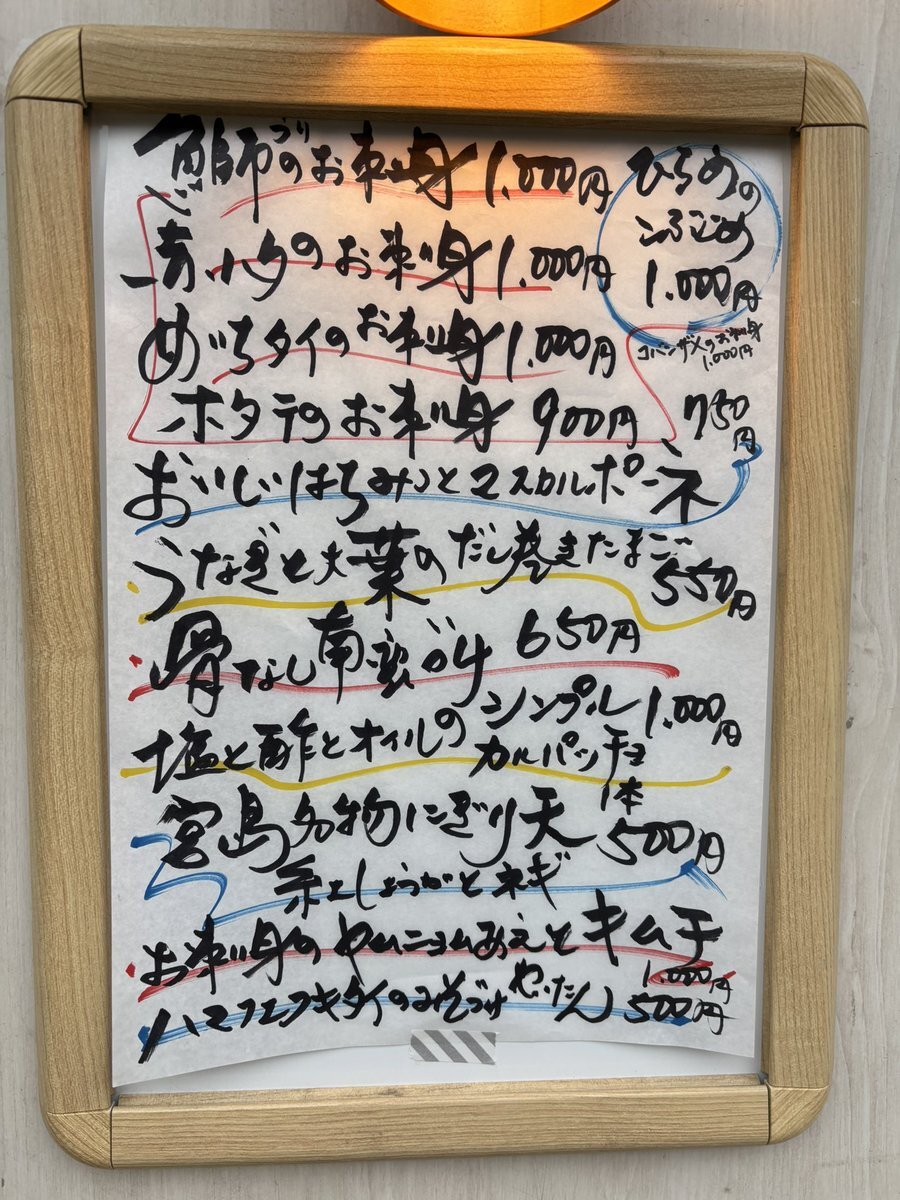 鰤のお刺身 1.000円
ぶり
青ハタのお刺身 1.000円
めいちタイのお刺身 1.000円
ホタテのお刺身 900円
ひらめの
こぶじめ
1.000円
コバンザメのお刺身
1.000円
おいしいはちみつとマスカルポーネ
750円
うなぎと大葉のだし巻きたまご
550円
骨なし南蛮づけ 650円
塩と酢とオイルの シンプル
カルパッチョ
1.000円
宮島名物にぎり天
1本
500円
紅しょうがとネギ
お刺身のヤムニョムあえとキムチ
1.000円
ハマフエフキダイのみそづけ やいたん 500円